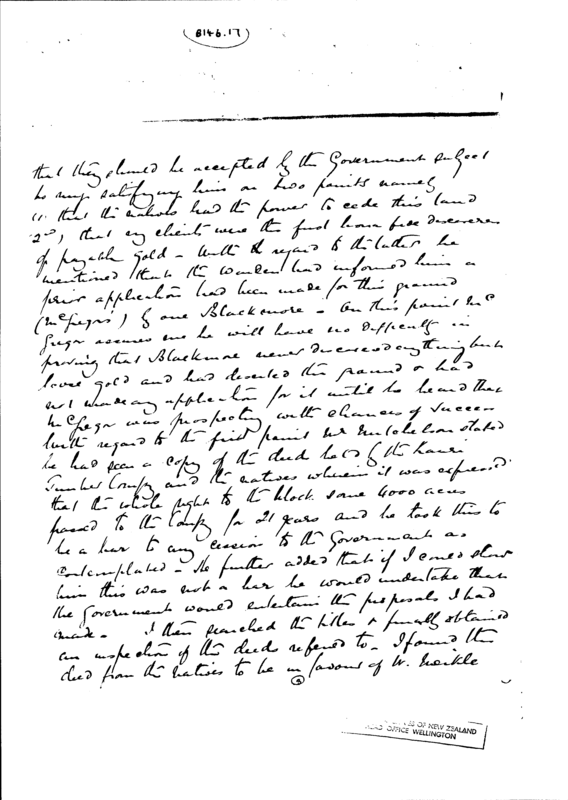 B146.17
that they should be accepted by the Government subject
to my satisfying him on two points namely
1. that the natives had the power to cede this land
2nd) that my clients were the first bona fide discoverers
of payable gold - With regard to the latter he
mentioned that the Warden had informed him a
prior application had been made for this ground
(McGregor's) by one Blackmore - On this point Mc
Gregor assures me he will have no difficulty in
proving that Blackmore never discovered anything but
loose gold and had deserted the ground & had
not made any application for it until he heard that
McGregor was prospecting with chances of success
With regard to the first point Mr Mitchelson stated
he had seen a copy of the deed betn the
Timber Compy and the natives wherein it was expressed
that the whole right to the block some 4000 acres
passed to the Compy for 21 years and he took this to
be a bar to any cession to the Government as
contemplated - He further added that if I could show
him this was not a bar he would undertake that
the Government would entertain the proposals I had
made - I then searched the titles & finally obtained
an inspection of the deeds referred to - I found the
deed from the natives to be in favour of W. Meikle
OF NEW ZEALAND
OFFICE WELLINGTON